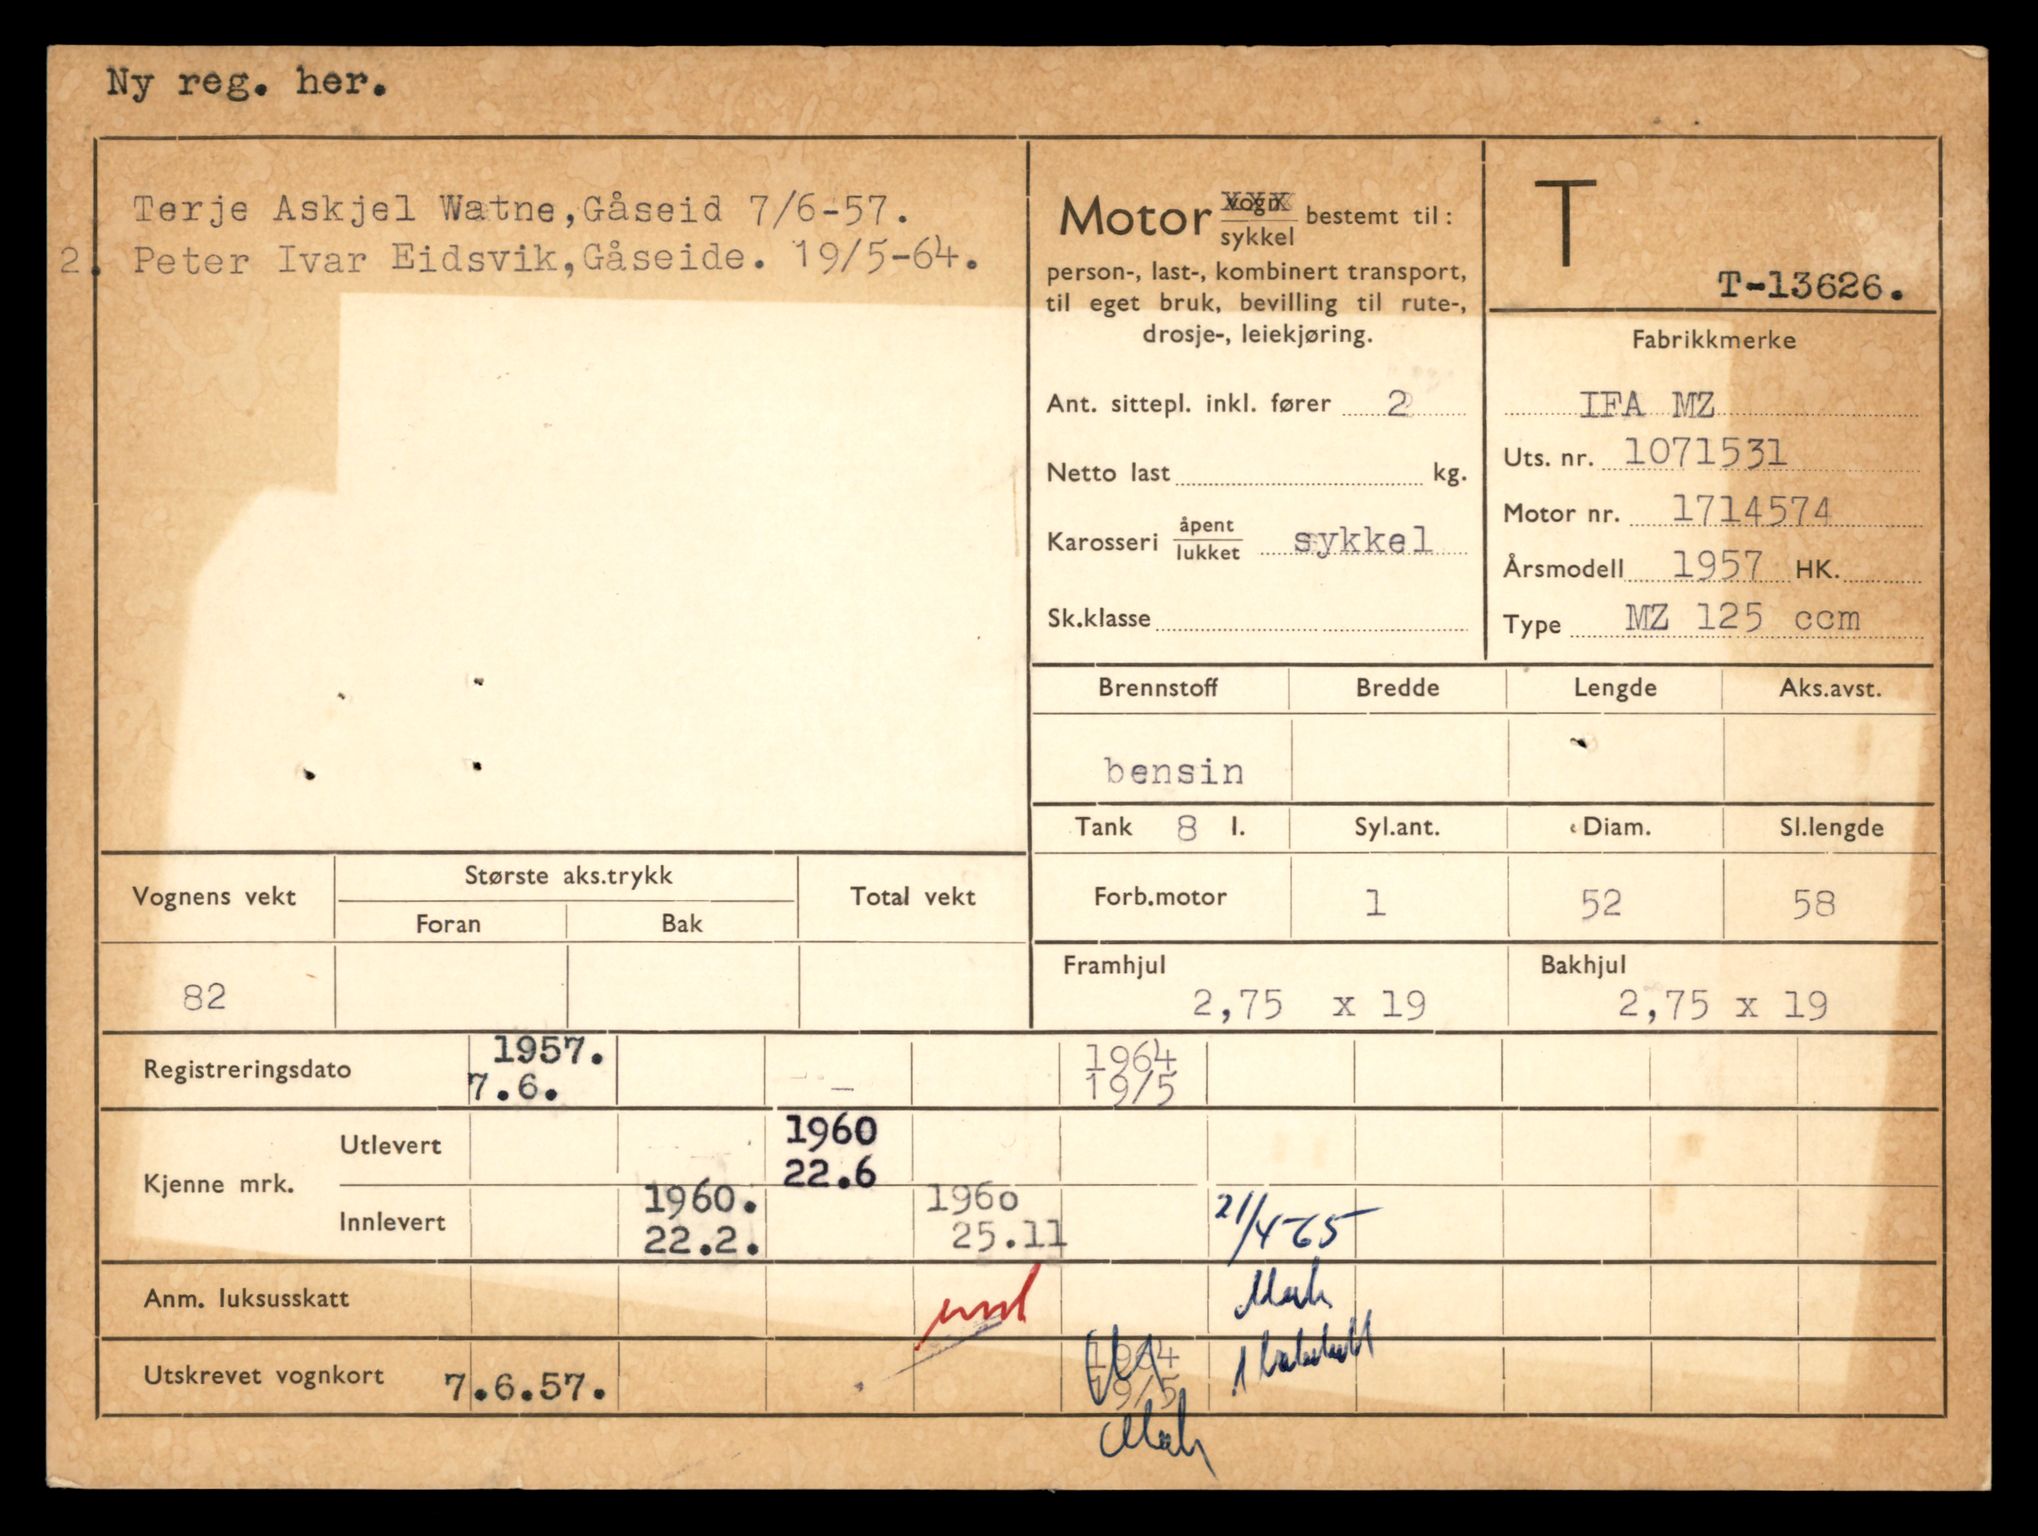 Ny reg. her.
Terje Askjel Watne,Gåseid 7/6-57.
2. Peter Ivar Eidsvik,Gåseide. 19/5-64.
Motor vogn bestemt til:
sykkel
person-, last-, kombinert transport,
til eget bruk, bevilling til rute-,
drosje-, leiekjøring.
Ant. sittepl. inkl. fører 2
Netto last kg.
Karosseri åpent
lukket sykkel
Sk.klasse
T
T-13626.
Fabrikkmerke
IFA MZ
Uts. nr. 1071531
Motor nr. 1714574
Årsmodell 1957 HK.
Type MZ 125 ccm
Brennstoff Bredde Lengde Aks.avst.
bensin
Tank 8 l. Syl.ant. Diam. Sl.lengde
Forb.motor 1 52 58
Framhjul Bakhjul
2,75 x 19 2,75 x 19
Vognens vekt Største aks.trykk Total vekt
Foran Bak
82
Registreringsdato 1957. 1964
7.6. 19/5
Kjenne mrk. Utlevert 1960
22.6
Innlevert 1960. 1960 21/4-65
22.2. 25.11
Anm. luksusskatt
Utskrevet vognkort 7.6.57. 1964
19/5